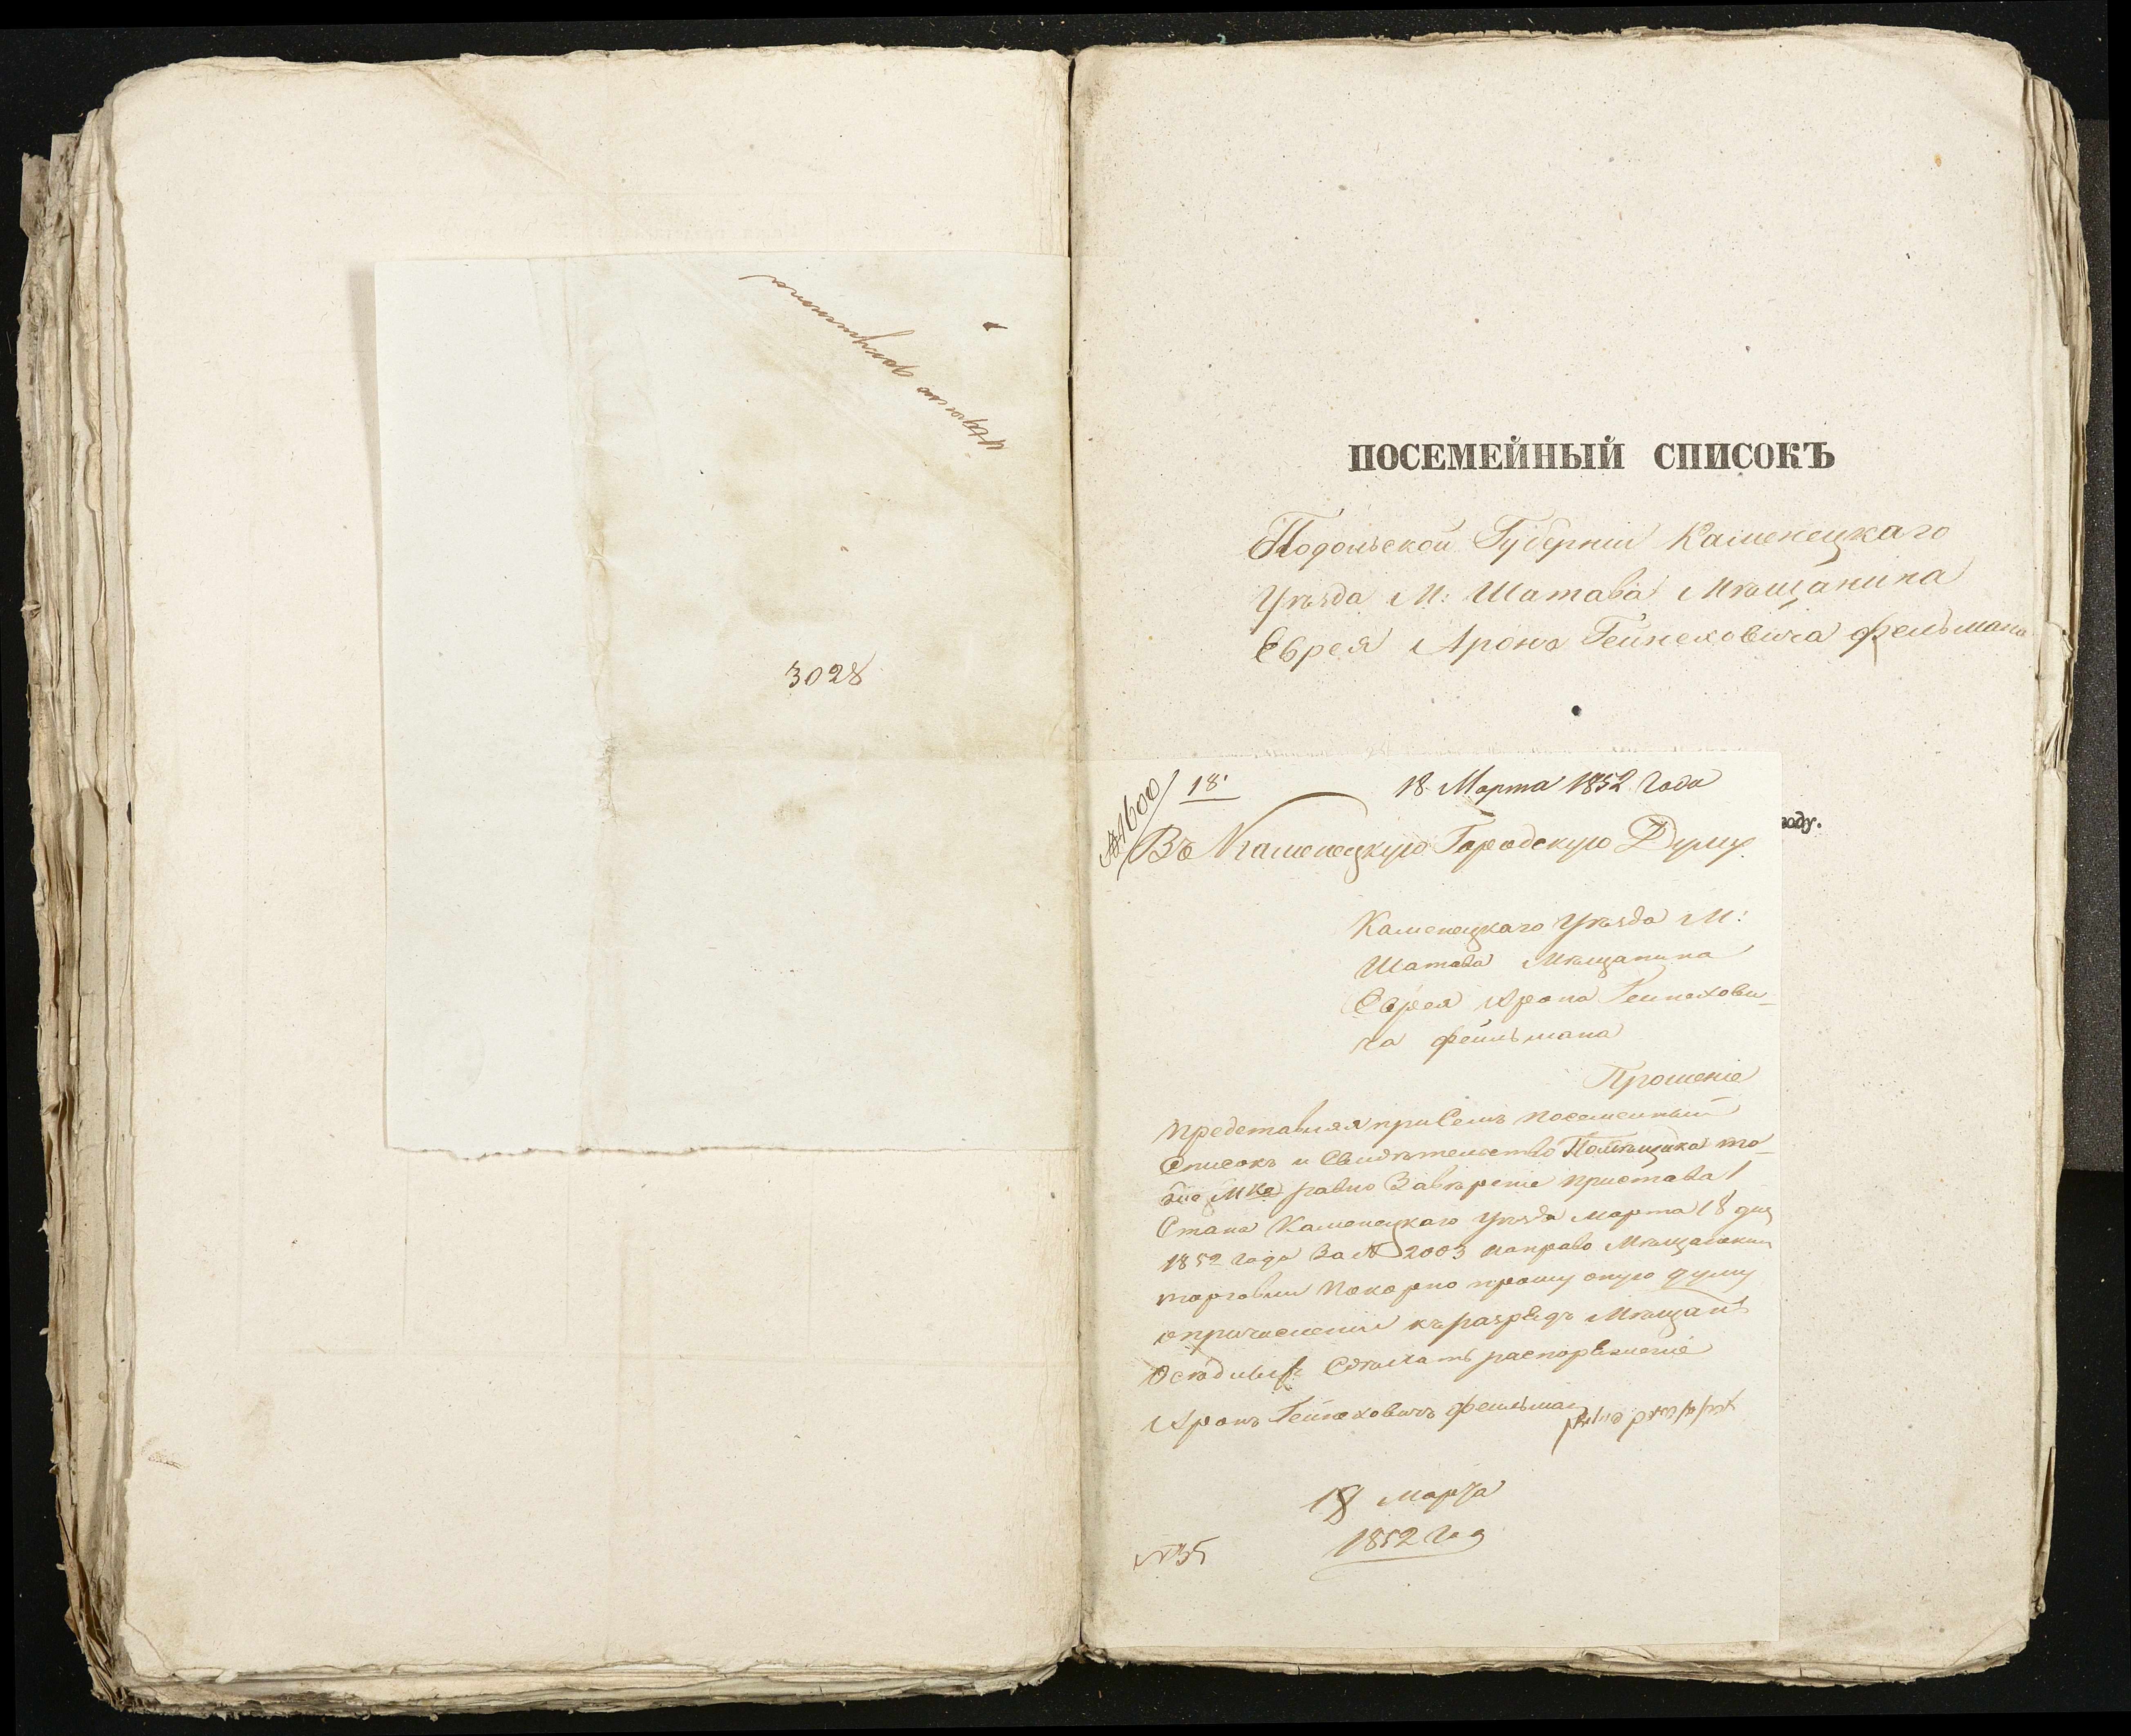 3028
ПОСЕМЕЙНЫЙ СПИСОКЪ
Подольской Губерніи Каменецкаго
Уѣзда М: Шатава Мѣщанина
Еврея Арона Гейнеховича Фельмана
№ 1600
18
18 Марта 1852 Года
году.
Въ Каменецкую Городскую Думу
Каменецкаго Уѣзда М:
Шатава Мѣщанина
Еврея Арона Гейнехови-
ча Фельмана
Прошеніе
Представляя при семъ посемейный
Списокъ и Свидѣтельство Помѣщика то-
равно Завѣреніе Пристава 1
Стана Каменецкаго Уѣзда Марта 18 дня
1852 года За № 2003 на право Мѣщанской
торговли Покорно прошу оную думу
о причисленіи къ разрядъ Мѣщанъ
Осѣдлыхъ Сдѣлать распоряженіе
Аронъ Гейнеховичъ Фельман
18 Марта
1852 год
№ 35